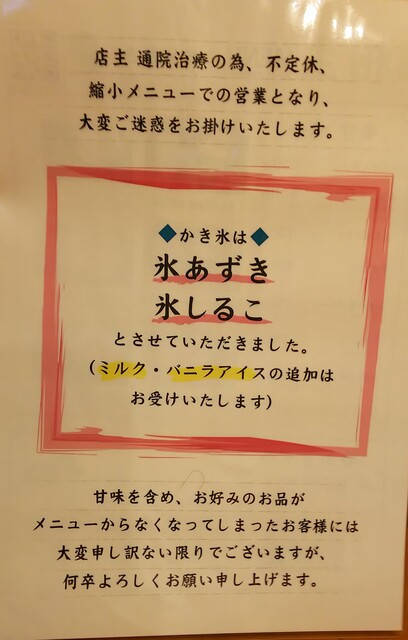 店主 通院治療の為、不定休、
縮小メニューでの営業となり、
大変ご迷惑をお掛けいたします。
◆かき氷は◆
氷あずき
氷しるこ
とさせていただきました。
(ミルク・バニラアイスの追加は
お受けいたします)
甘味を含め、お好みのお品が
メニューからなくなってしまったお客様には
大変申し訳ない限りでございますが、
何卒よろしくお願い申し上げます。